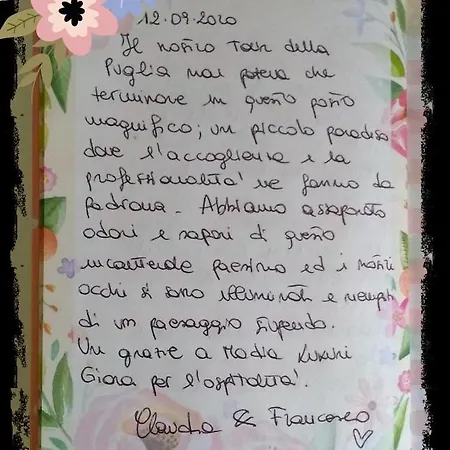 12.09.2020
Il nostro Tour della
Puglia mai poteva che
terminare in questo posto
magnifico; un piccolo paradiso
dove l'accoglienza e la
professionalità ne fanno da
padrona. Abbiamo assaporato
odori e sapori di questo
incantevole paesino ed i nostri
occhi si sono illuminati e riempiti
di un paesaggio stupendo.
Un grazie a Madia
Gioia per l'ospitalità.
Claudia & Francesco